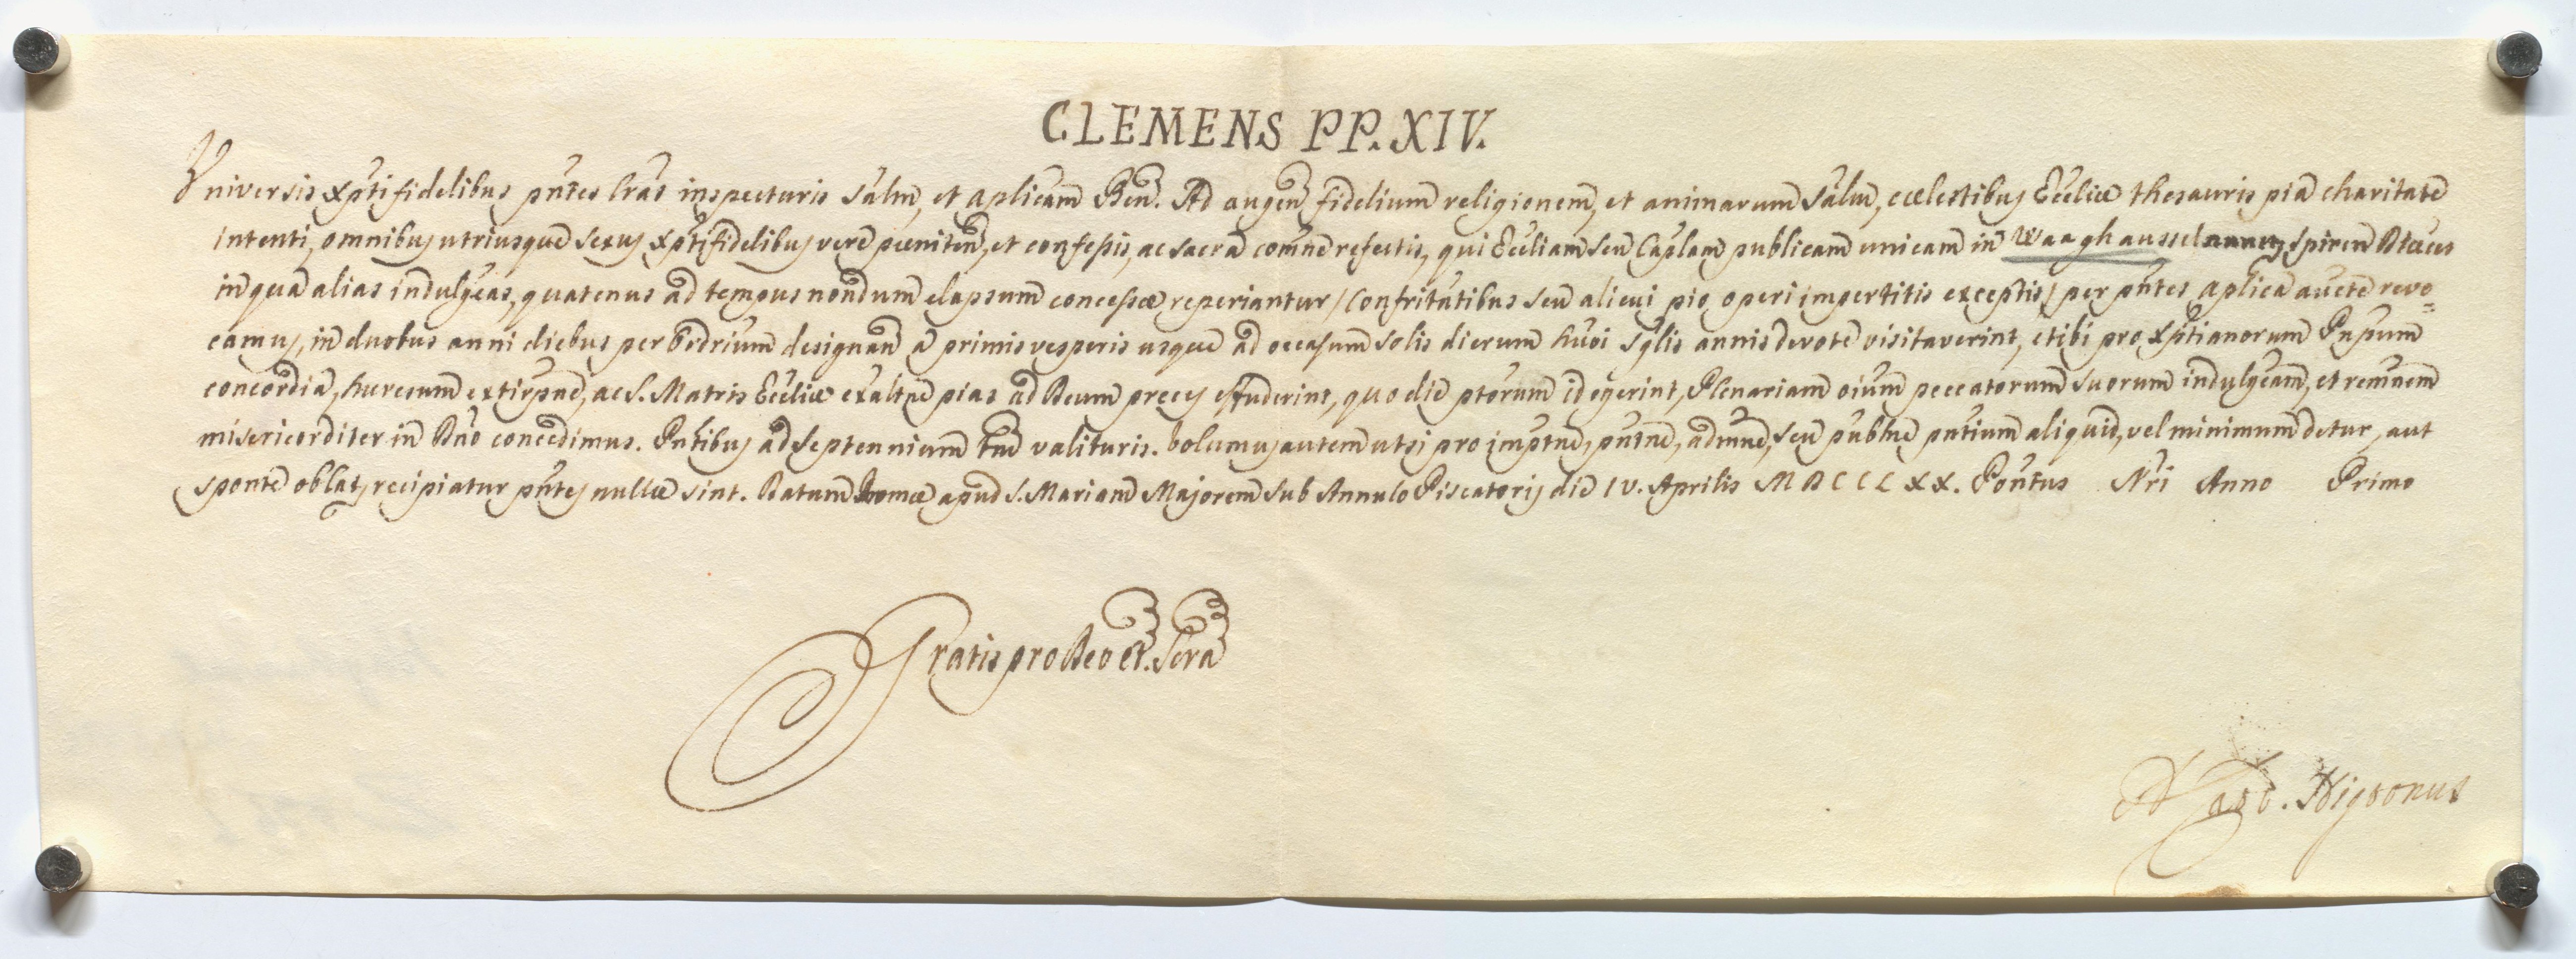 CLEMENS PP. XIV.
Universis Xpti fidelibus pntes lras inspecturis Salm, et Aplicam Ben. Ad augen fidelium religionem, et animarum Salm, cœlestibus Eccliæ thesauris pia charitate
intenti, omnibus utriusque sexus Xptifidelibus vere pœniten, et confessis, ac sacra comne refectis, qui Eccliam seu Caplam publicam unicam in Waaghaussel Spiren Diœcis
in qua alias indulgeas, quatenus ad tempus nondum elapsum concessæ reperiantur / Confritatibus seu alicui pio operi impertitis exceptis / per pntes Aplica aucte revo=
camus, in duobus anni diebus per Ordrium designan a primis vesperis usque ad occasum Solis dierum huoi Sglis annis devote visitaverint, et ibi pro Xptianorum Pnpum
concordia, hæresum extirpne, ac S. Matris Ecclie exaltne pias ad Deum preces effuderint, quo die ptorum id egerint, Plenariam oium peccatorum suorum indulgeam, et remnem
misericorditer in Dno concedimus. Pntibus ad septennium tm valituris. Volumus autem ut si pro imptne, pntne, admne, seu publne pntium aliquid, vel minimum detur, aut
sponte oblat, recipiatur pntes nullæ sint. Datum Romæ apud S. Mariam Majorem Sub Annulo Piscatoris die IV. Aprilis MDCCLXX. Pontus Nri Anno Primo
Gratis pro Deo et Scra